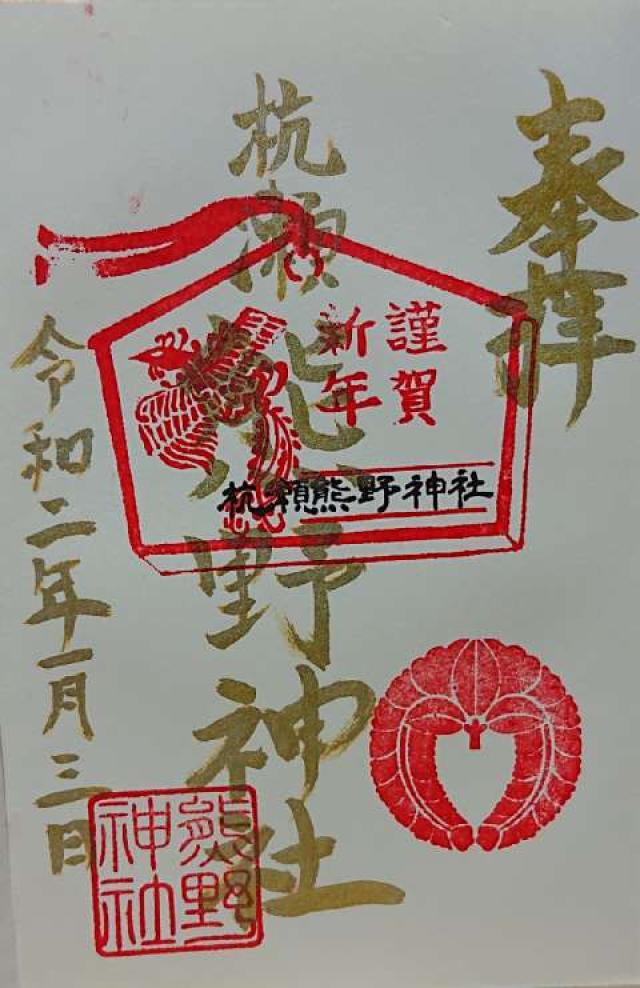 奉拝
杭瀬熊野神社
令和二年一月三日
謹賀
新年
杭瀬熊野神社
熊野
神社